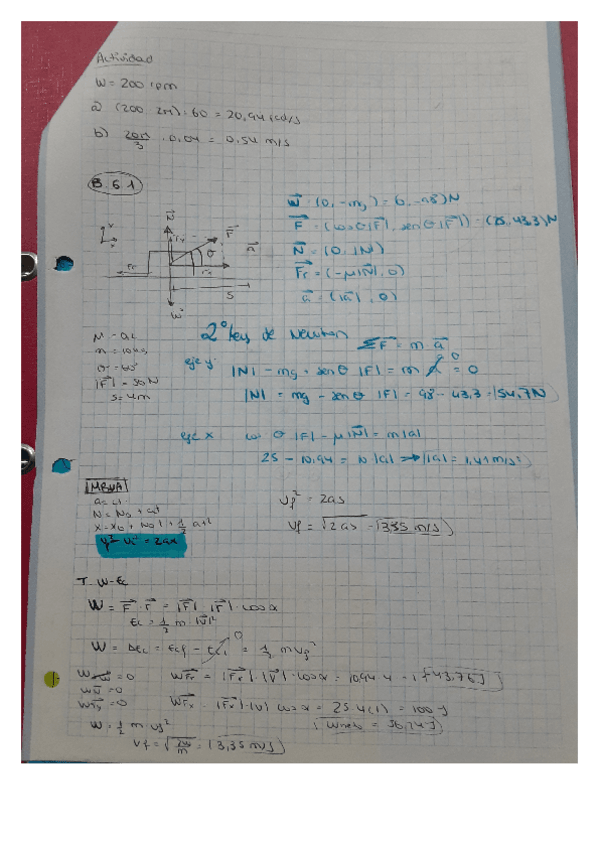 Actividad
W = 200 rpm
a) (200 · 2π) : 60 = 20,94 rad/s
b) 20π/3 · 0,04 = 0,54 m/s
B.6.1
W = (0, -mg) = (0, -98) N
F = (cos θ |F|, sen θ |F|) = (25, 43,3) N
N = (0, |N|)
Fr = (-μ|N|, 0)
a = (|a|, 0)
N
F
Fr
θ
S
W
2ª Ley de Newton ΣF = m · a
|F| = 50 N
S = 4m
eje y: |N| - mg + sen θ |F| = m a = 0
|N| = mg - sen θ |F| = 98 - 43,3 = 54,7 N
eje x cos θ |F| - μ|N| = m|a|
25 - 10,94 = 10 |a| → |a| = 1,41 m/s²
MRUA
a = ct
x = x0 + v0 t + 1/2 at²
vf² - vi² = 2as
vf² = 2as
vf = √2as = 3,35 m/s
T. W-Ec
W = F · r = |F| · |r| · cos α
Ec = 1/2 m |v|²
W = ΔEc = Ecf - Eci = 1/2 m vf²
0
W = 0
WN = 0
WFy = 0
WFr = |Fr| · |r| · cos α = 10,94 · 4 · (-1) = -43,76 J
WFx = |Fx| · |r| cos α = 25 · 4 (1) = 100 J
W = 1/2 m vf²
Wneto = 56,24 J
vf = √2w/m = 3,35 m/s